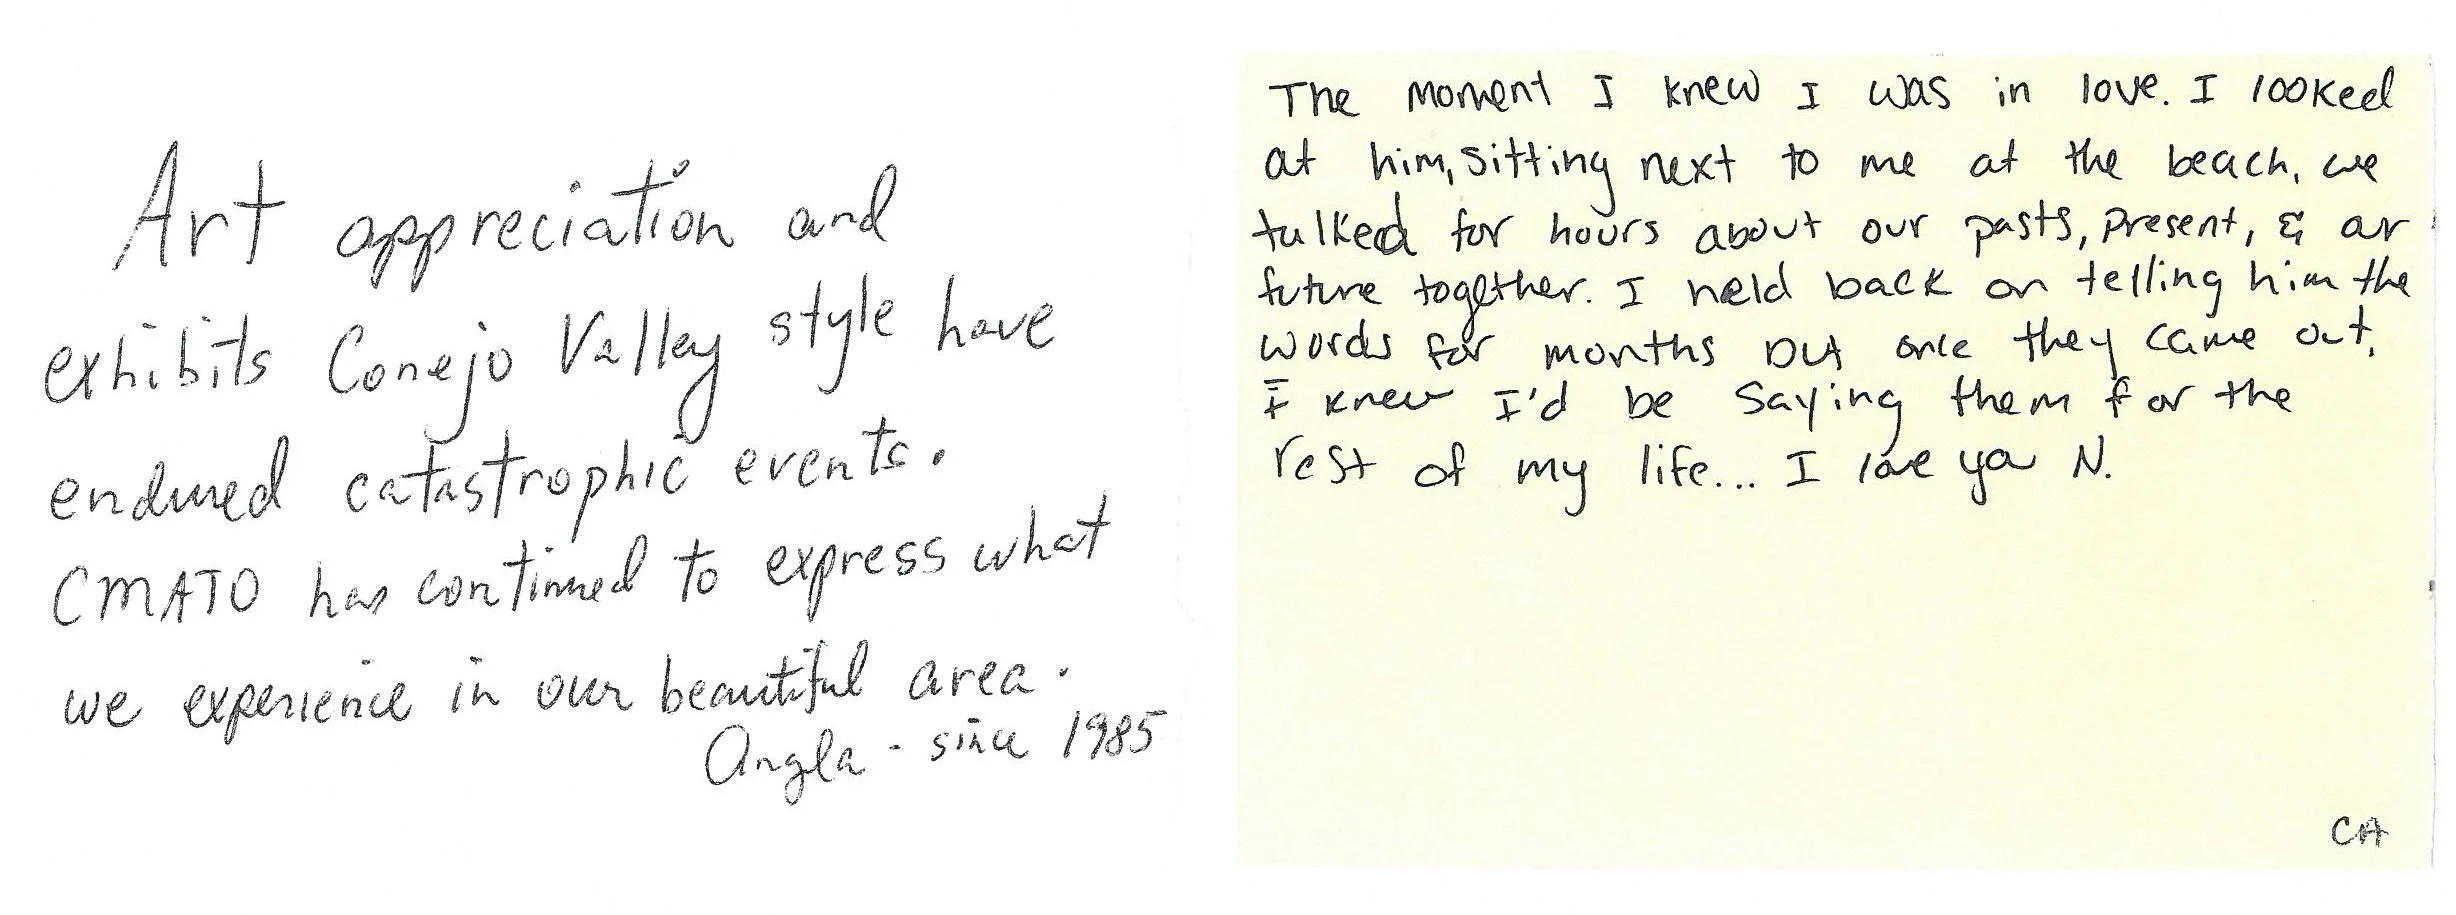 Art appreciation and
exhibits Conejo Valley style have
endured catastrophic events.
CMATO has continued to express what
we experience in our beautiful area.
Angla - since 1985
The moment I knew I was in love. I looked
at him, sitting next to me at the beach, we
talked for hours about our pasts, present, & our
future together. I held back on telling him the
words for months but once they came out,
I knew I'd be saying them for the
rest of my life... I love you N.
CA